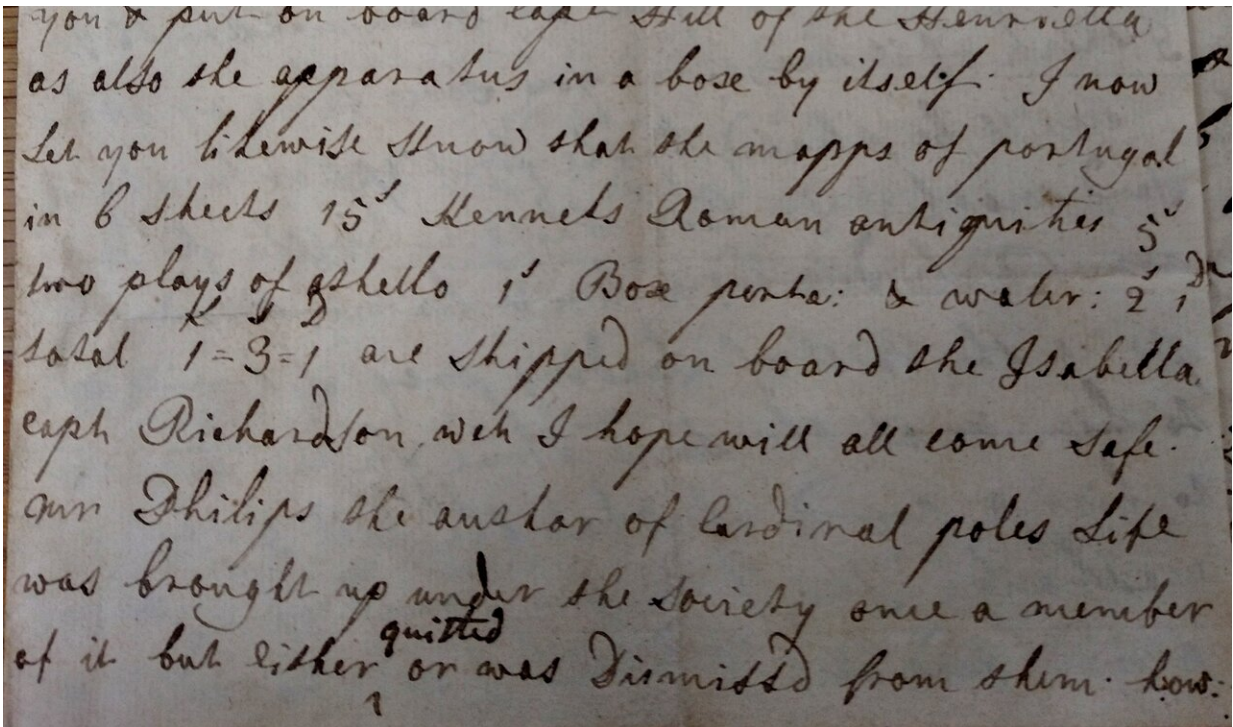 you & put on board capt Hill of the Henrietta
as also the apparatus in a boxe by itself. I now
Let you likewise Know that the mapps of portugal
in 6 sheets 15s Kennets Roman antiquities 5s
two plays of othello 1s Boxe porta: & water: 2s 1D
L S D
total 1=3=1 are shipped on board the Isabella
capt Richardson wch I hope will all come safe.
mr Philips the author of Cardinal poles Life
was brought up under the society once a member
quitted
of it but either ^ or was Dismissd from them. how: